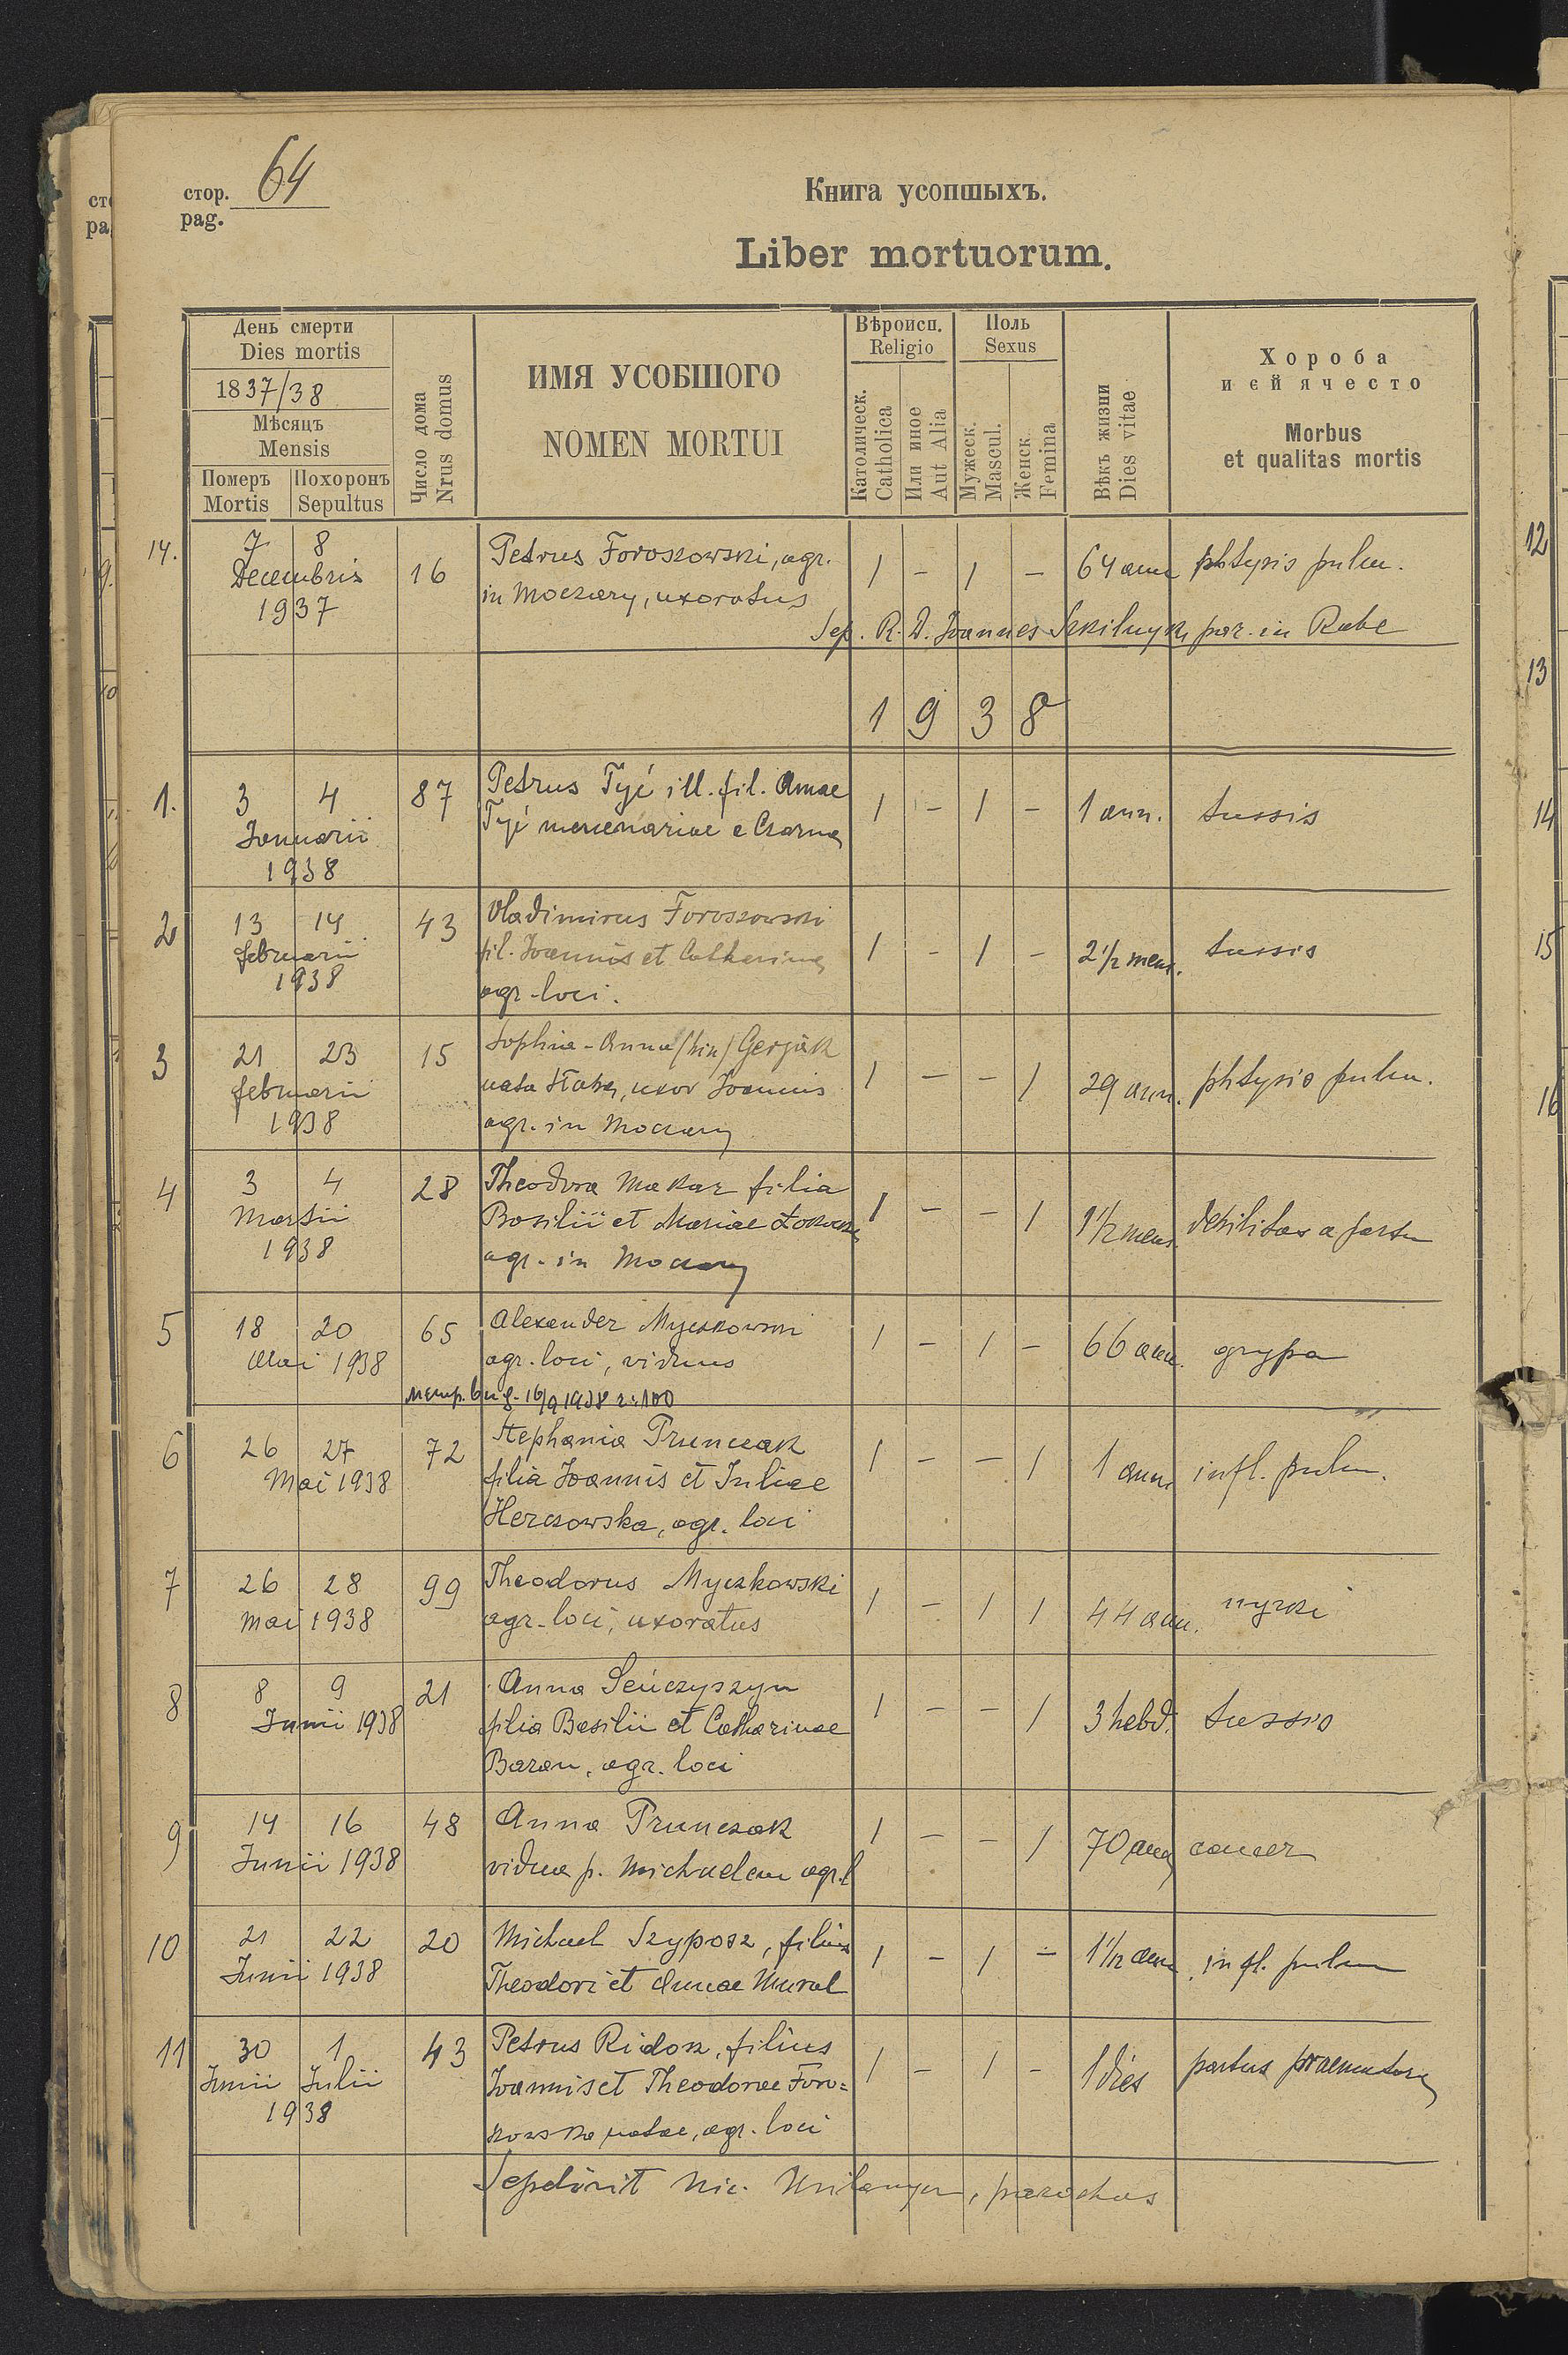 стор. 64
pag.
Книга усопшыхъ.
Liber mortuorum.
День смерти
Dies mortis
1837/38
Мѣсяцъ
Mensis
Померъ Похоронъ
Mortis Sepultus
Число дома
Nrus domus
ИМЯ УСОБШОГО
NOMEN MORTUI
Вѣроисп.
Religio
Католическ.
Catholica
Или иное
Aut Alia
Поль
Sexus
Мужеск.
Mascul.
Женск.
Femina
Вѣкъ жизни
Dies vitae
Хороба
и єй ячесто
Morbus
et qualitas mortis
14. 7 8 16 Petrus Foroszowski, agr. 1 - 1 - 64 ann phtysis pulm.
Decembris
1937 in Moczary, uxoratus
Sep. R. D. Joannes Szkilnyk, par. in Rabe
1938
1. 3 4 87 Petrus Tyć ill. fil. Annae 1 - 1 - 1 ann. tussis
Januarii Tyć mercenariae e Czarna
1938
2 13 14 43 Vladimirus Foroszowski 1 - 1 - 2 1/2 mens. tussis
februarii fil. Joannis et Catharina
1938 agr. loci.
3 21 23 15 Sophia-Anna (bin) Gerjak 1 - - 1 29 ann. phtysis pulm.
februarii nata , uxor Joannis
1938 agr. in Moczary
4 3 4 28 Theodora Makar filia 1 - - 1 1 1/2 mens. debilitas a partu
Martii Basilii et Mariae
1938 agr. in Moczary
5 18 20 65 Alexander Myczkowski 1 - 1 - 66 ann. grypa
Mai 1938 agr. loci, viduus
16/9 1938 100
6 26 27 72 Stephania Prunczak 1 - - 1 1 ann infl. pulm.
Mai 1938 filia Joannis et Juliae
Herczowska, agr. loci
7 26 28 99 Theodorus Myczkowski 1 - 1 1 44 ann. nyrki
Mai 1938 agr. loci, uxoratus
8 8 9 21 Anna Seńczyszyn 1 - - 1 3 hebd. tussis
Junii 1938 filia Basilii et Catharinae
Baran, agr. loci
9 14 16 48 Anna Prunczak 1 - - 1 70 ann cancer
Junii 1938 vidua p. Michaelem agr. l
10 21 22 20 Michael Szyposz, filius 1 - 1 - 1 1/12 ann infl. pulm
Junii 1938 Theodori et Annae Mural
11 30 1 43 Petrus Ridosz, filius 1 - 1 - 1 dies partus praematura
Junii Julii Joannis et Theodorae Foro=
1938 szowska natae, agr. loci
Sepelivit Nic. , parochus
12
13
14
15
16